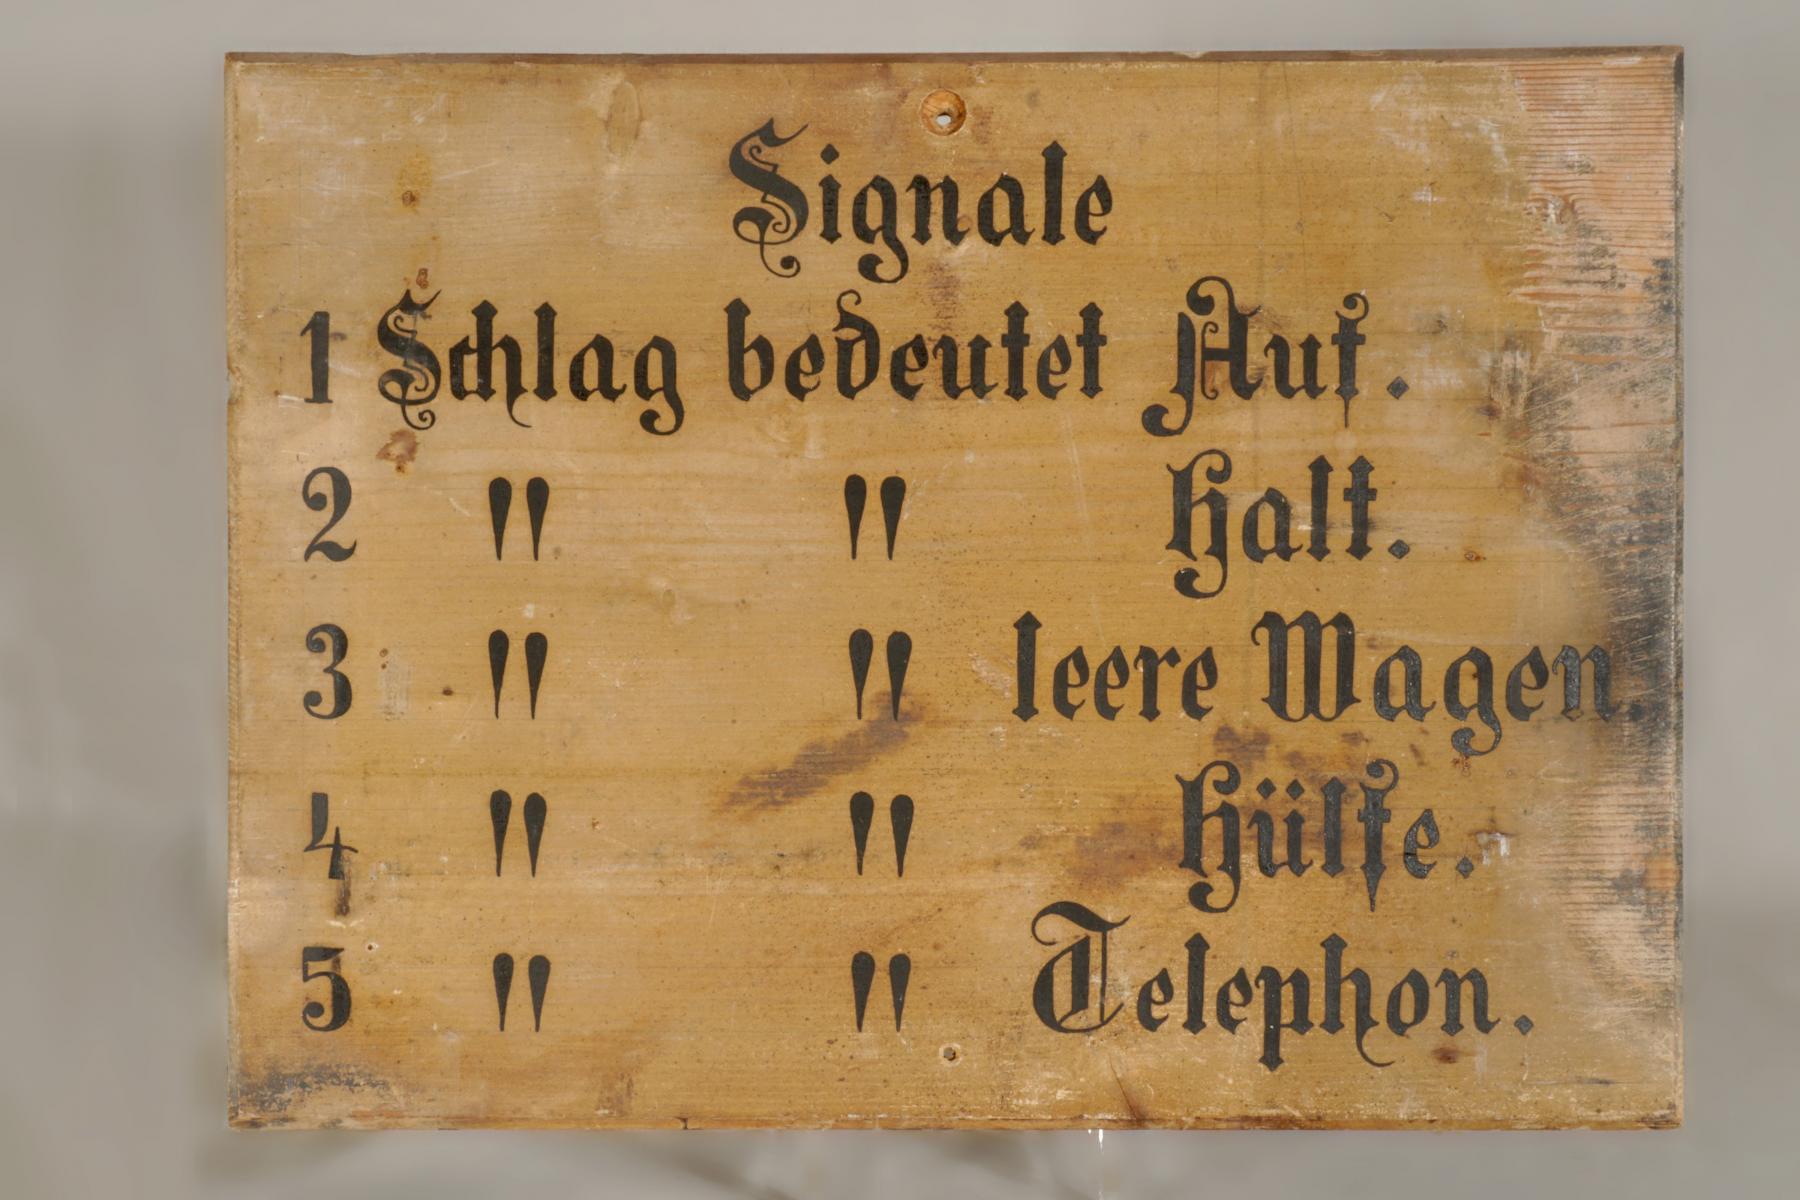 Signale
1 Schlag bedeutet Auf.
2 " " Halt.
3 " " leere Wagen.
4 " " Hülfe.
5 " " Telephon.